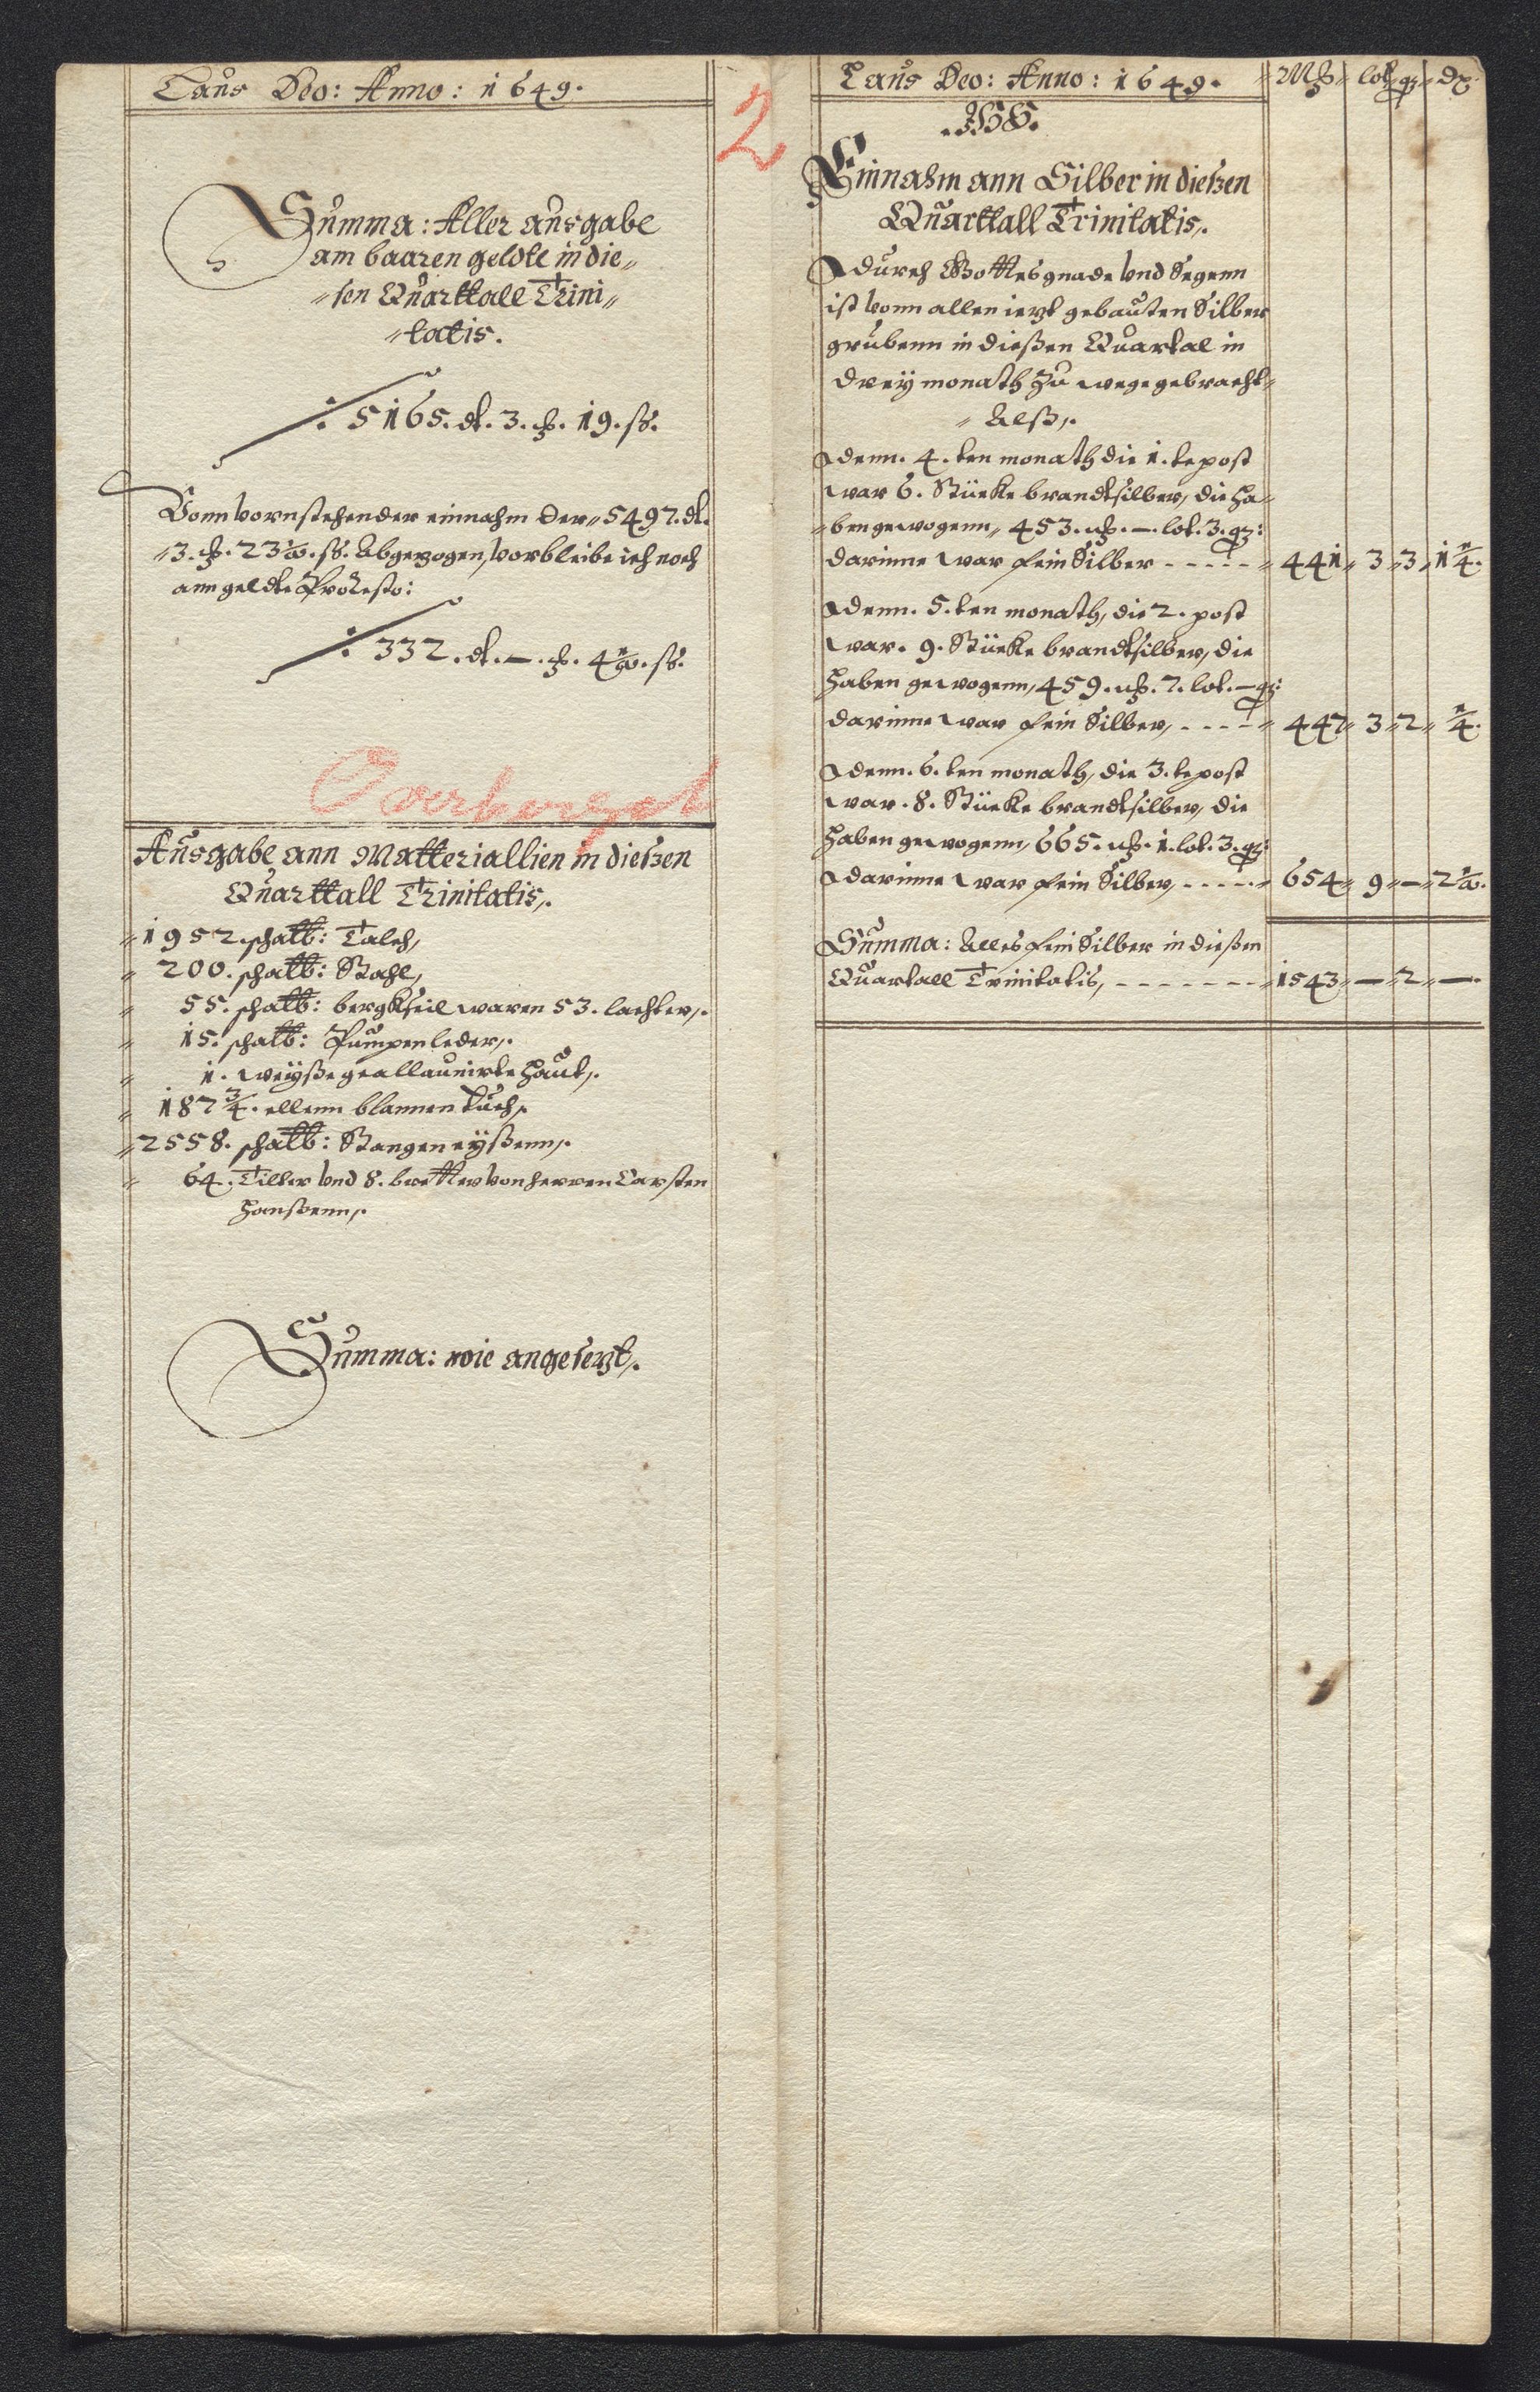 Laus Deo: Anno: 1649.
Summa: Aller ausgabe
am baaren geldte in die„
„sen Quarttall Trini„
„tatis.
5165. dt. 3. ꝶ. 19. ß.
Vonn vornstehender einnahm der„ 5497. dt.
„3. ꝶ. 23½. ß. Abgezogen, vorbleibe ich noch
ann geldte Pro Resto:
332. dt. —. ꝶ. 4½. ß.
Overberget
Ausgabe ann Matteriallien in dießen
Quarttall Trinitatis,.
„1952. schalb: Talch,
„200. schalb: Stahl,
„55. schalb: bergkseil waren 53. lachter,.
„15. schalb: Pumpenleder,.
„1. weyße geallaunirte Haut,.
„187¾. ellenn blannen tuch,.
„2558. schalb: Stangen eyßenn,.
„64. Tilter vnd 8. bretter von herren Carsten
Hanßenn,.
Summa: wie angesezt,.
2
Laus Deo: Anno: 1649. „ Mß „ lot „ qz „ dz
Einnahm ann Silber in dießen
Quarttall Trinitatis,.
durch Gottes gnade vnd Segenn
ist vonn allen iezt gebauten Silber
grubenn in dießen Quartal in
drey monath zu wege gebracht„
„Alß,.
denn. 4. ten monath die 1. te post
war 6. Stücke brandtsilber, die ha„
„ben gewogenn„ 453. mß. —. lot. 3. qz:
darinne war fein Silber - - - - - „ 441 „ 3 „ 3 „ 1¼.
denn. 5. ten monath, die 2. post
war. 9. Stücke brandtsilber, die
haben gewogenn, 459. mß. 7. lot. — qz:
darinne war fein Silber, - - - - „ 447 „ 3 „ 2 „ ¼.
denn. 6. ten monath, die 3. te post
war. 8. Stücke brandtsilber, die
haben gewogenn, 665. mß. 1. lot. 3. qz:
darinne war fein Silber, - - - - - „ 654 „ 9 „ — „ 2½.
Summa: Alles fein Silber in dießen
Quartall Trinitatis, - - - - - - - „ 1543 „ — „ 2 „ —.